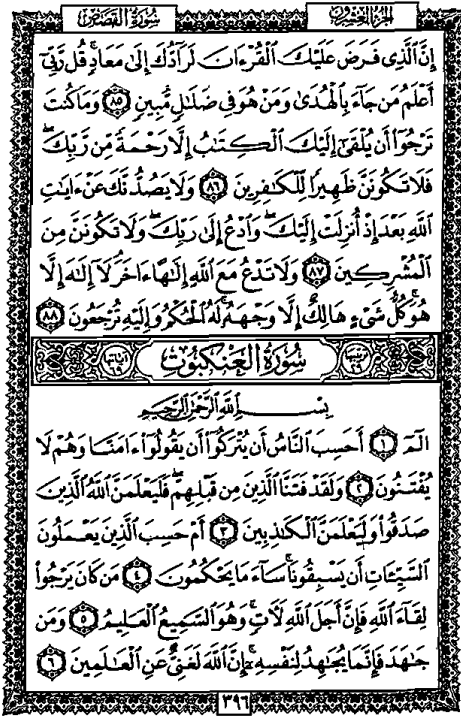 سُورَةُ القَصَصِ
الجزء العشرون
إِنَّ ٱلَّذِى فَرَضَ عَلَيْكَ ٱلْقُرْءَانَ لَرَآدُّكَ إِلَىٰ مَعَادٍ ۚ قُل رَّبِّىٓ
أَعْلَمُ مَن جَآءَ بِٱلْهُدَىٰ وَمَنْ هُوَ فِى ضَلَٰلٍ مُّبِينٍ ٨٥ وَمَا كُنتَ
تَرْجُوٓا۟ أَن يُلْقَىٰٓ إِلَيْكَ ٱلْكِتَٰبُ إِلَّا رَحْمَةً مِّن رَّبِّكَ ۖ
فَلَا تَكُونَنَّ ظَهِيرًا لِّلْكَٰفِرِينَ ٨٦ وَلَا يَصُدُّنَّكَ عَنْ ءَايَٰتِ
ٱللَّهِ بَعْدَ إِذْ أُنزِلَتْ إِلَيْكَ ۖ وَٱدْعُ إِلَىٰ رَبِّكَ ۖ وَلَا تَكُونَنَّ مِنَ
ٱلْمُشْرِكِينَ ٨٧ وَلَا تَدْعُ مَعَ ٱللَّهِ إِلَٰهًا ءَاخَرَ ۘ لَآ إِلَٰهَ إِلَّا
هُوَ ۚ كُلُّ شَىْءٍ هَالِكٌ إِلَّا وَجْهَهُۥ ۚ لَهُ ٱلْحُكْمُ وَإِلَيْهِ تُرْجَعُونَ ٨٨
سُورَةُ العَنكَبُوتِ
ترتيبها ٢٩
آياتها ٦٩
بِسْمِ ٱللَّهِ ٱلرَّحْمَٰنِ ٱلرَّحِيمِ
الٓمٓ ١ أَحَسِبَ ٱلنَّاسُ أَن يُتْرَكُوٓا۟ أَن يَقُولُوٓا۟ ءَامَنَّا وَهُمْ لَا
يُفْتَنُونَ ٢ وَلَقَدْ فَتَنَّا ٱلَّذِينَ مِن قَبْلِهِمْ ۖ فَلَيَعْلَمَنَّ ٱللَّهُ ٱلَّذِينَ
صَدَقُوا۟ وَلَيَعْلَمَنَّ ٱلْكَٰذِبِينَ ٣ أَمْ حَسِبَ ٱلَّذِينَ يَعْمَلُونَ
ٱلسَّيِّـَٔاتِ أَن يَسْبِقُونَا ۚ سَآءَ مَا يَحْكُمُونَ ٤ مَن كَانَ يَرْجُوا۟
لِقَآءَ ٱللَّهِ فَإِنَّ أَجَلَ ٱللَّهِ لَءَاتٍ ۚ وَهُوَ ٱلسَّمِيعُ ٱلْعَلِيمُ ٥ وَمَن
جَٰهَدَ فَإِنَّمَا يُجَٰهِدُ لِنَفْسِهِۦٓ ۚ إِنَّ ٱللَّهَ لَغَنِىٌّ عَنِ ٱلْعَٰلَمِينَ ٦
٣٩٦